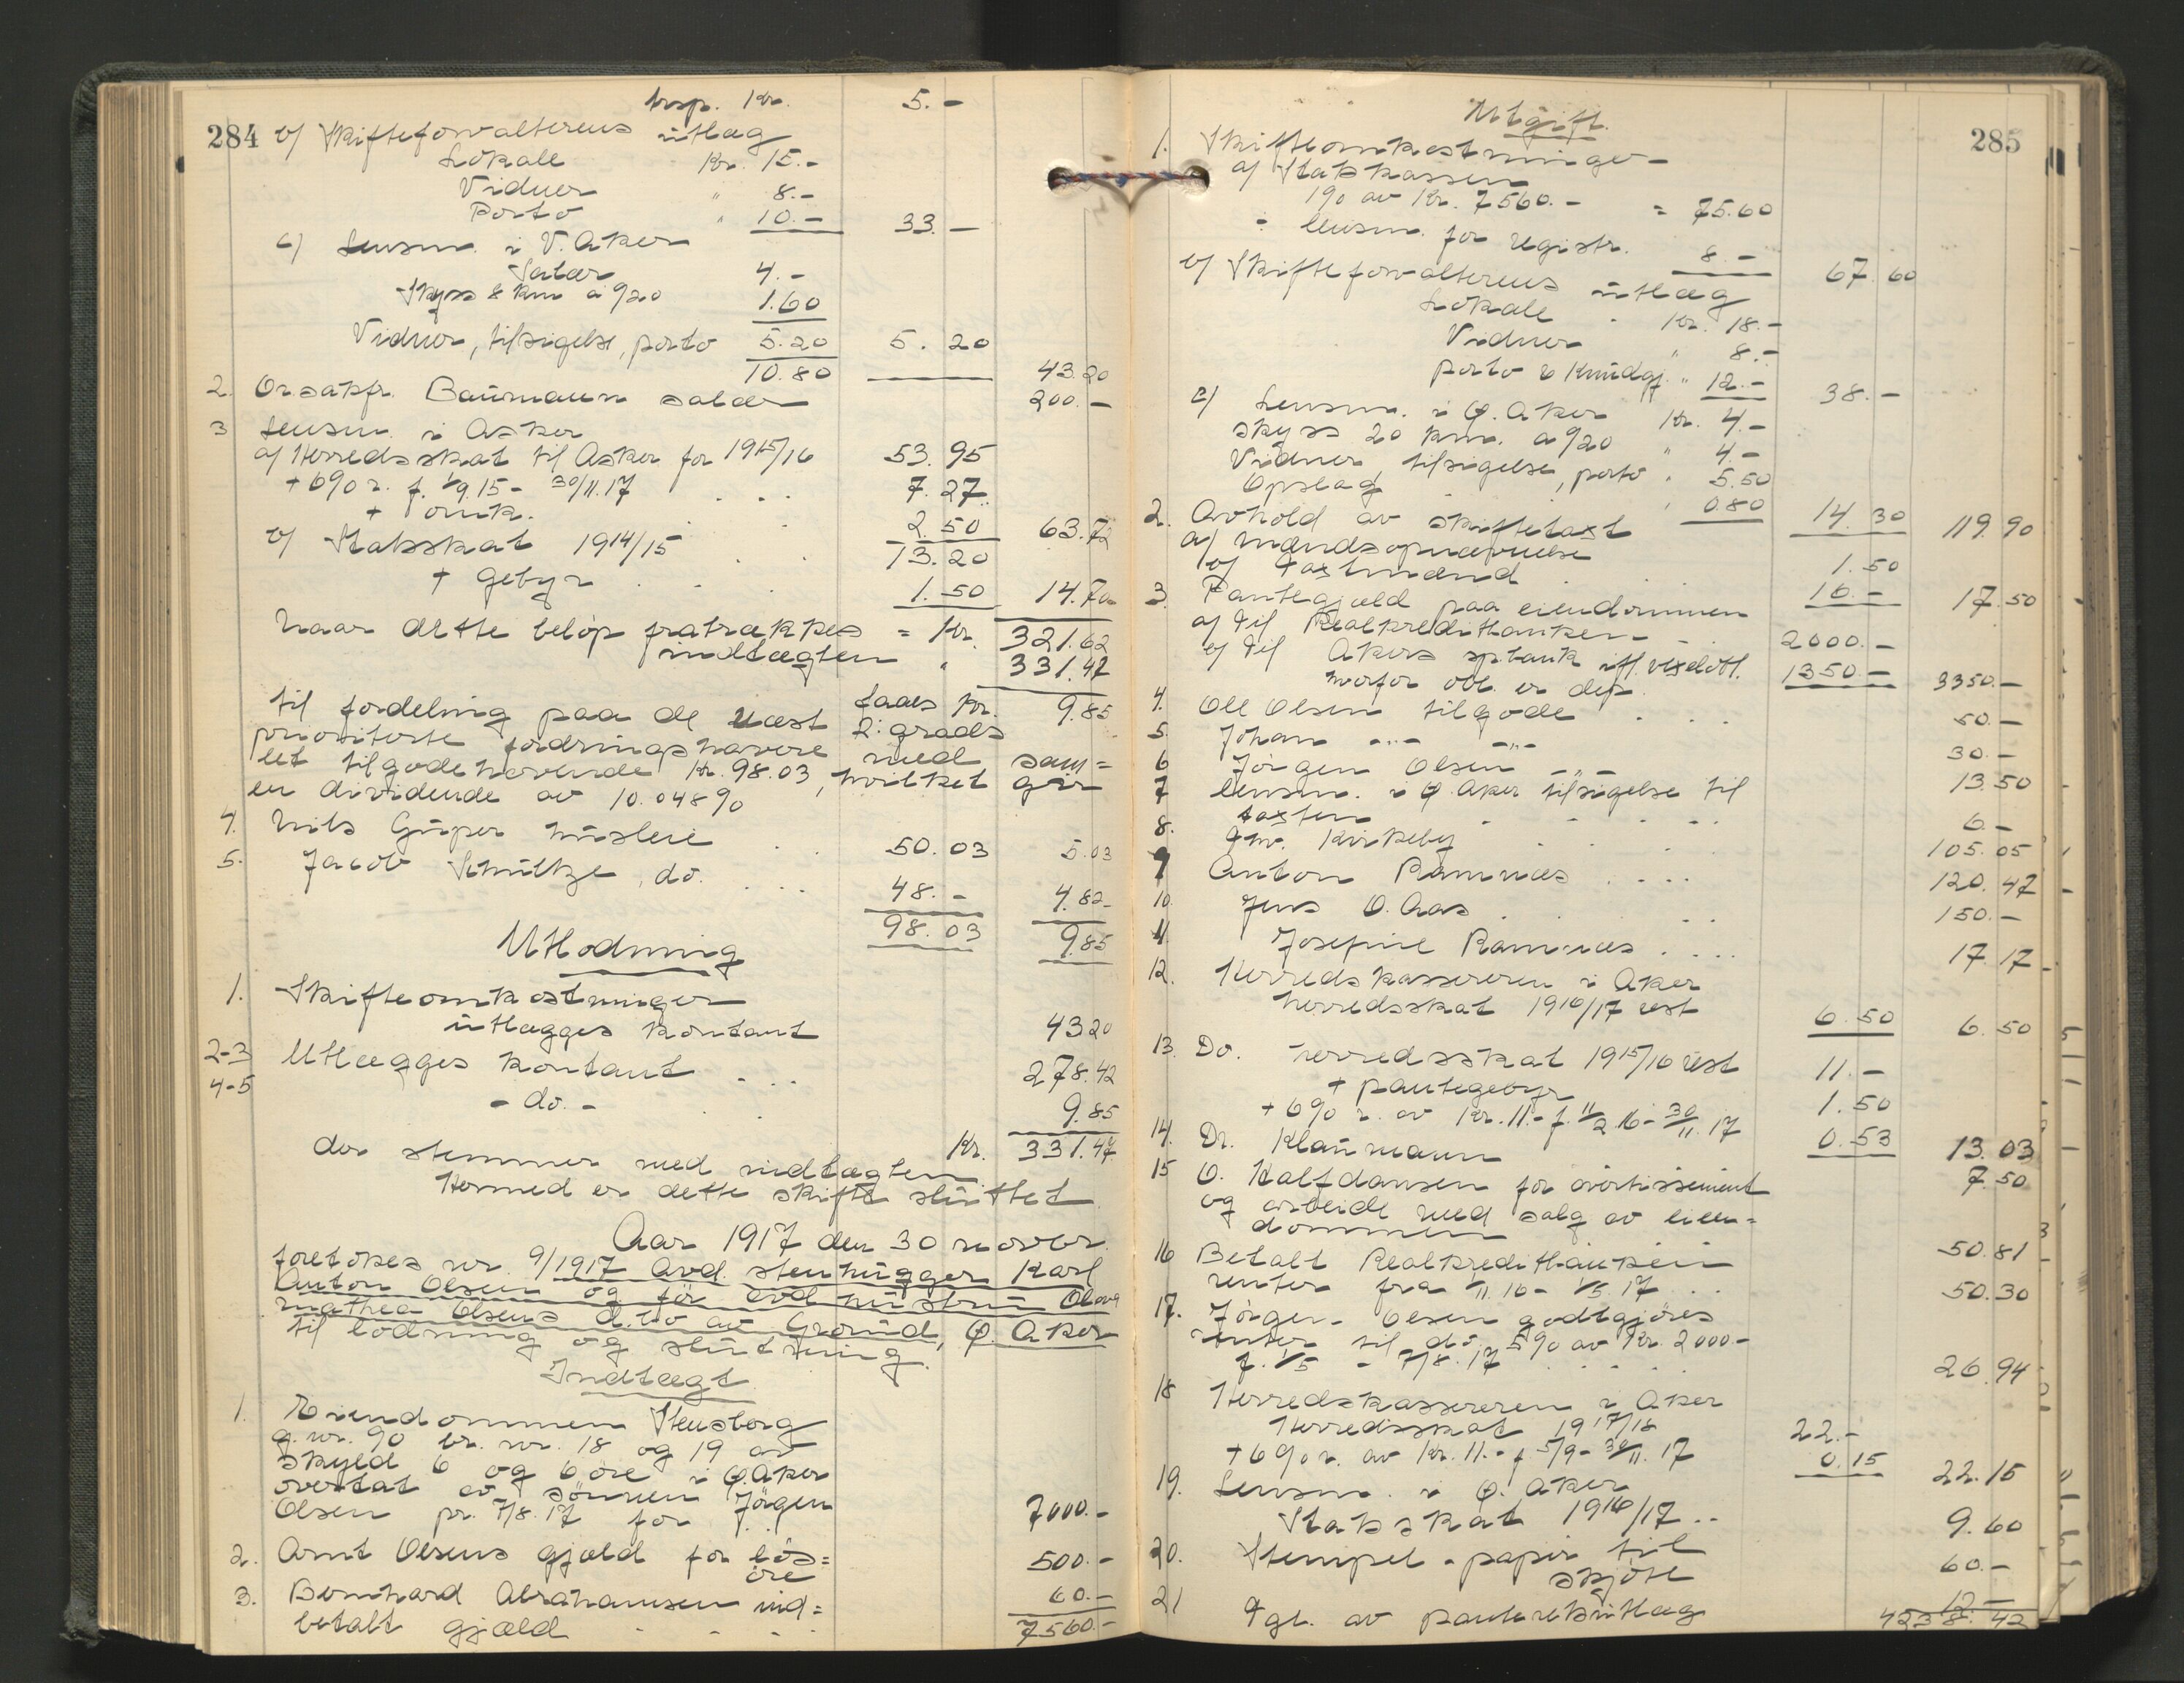 284
trsp. Kr. 5.-
b/ Skifteforvalterens utlæg
Lokale Kr. 15.-
Vidner " 8.-
Porto " 10.- 33.-
c/ Lensm. i V. Aker
Salær 4.-
Skyss 8 km à 9/20 1.60
Vidner, tilsigelse, porto 5.20 5.20
10.80 43.20
2. Orsakfr. Baumann salær 200.-
3 Lensm. i Asker
a/ Herredsskat til Asker for 1915/16 53.95
+ 6% r. f. 1/9.15 - 30/11.17 . . . 7.27
+ omk. 2.50 63.72
b/ Statsskat 1914/15 . . 13.20
+ gebyr . . . 1.50 14.70
Naar dette beløp fratrækkes = Kr. 321.62
indtægten " 331.47
faaes Kr. 9.85
til fordeling paa de næst 2: grads
prioriterte fordringshavere med sam=
let tilgodehavende Kr. 98.03, hvilket gir
en dividende av 10.048%
4. Nils Guper Huslere . . 50.03 5.03
5. Jacob Schultze, do. . . . 48.- 4.82
98.03 9.85
Utlodning
1. Skifteomkostninger
utlægges kontant 43 20
2-3 Utlægges kontant . . . 278.42
4-5 - do. - . . 9.85
Kr. 331.47
der stemmer med indtægten
Hermed er dette skifte sluttet
Aar 1917 den 30 novbr.
foretokes nr. 9/1917 Avd. stenhugger Karl
Anton Olsen og før avd hustru Olava
Mathea Olsens d.bo av Grorud, Ø. Aker
til lodning og slutning.
Indtægt
1. Eiendommen Stensborg
g.nr. 90 br. nr. 18 og 19 av
skyld 6 og 6 øre i Ø. Aker
overtat av sønnen Jørgen
Olsen pr. 7/8.17 for . . 7000.-
2. Arnt Olsens gjæld for løs=
øre 500.-
3. Bernhard Abrahamsen ind=
betalt gjæld - - - - 60.-
7560.-
285
Utgift.
1. Skifteomkostninger -
a/ Statskassen
1% av Kr. 7560.- = 75.60
÷ lensm. for registr. 8.- 67.60
b/ Skifteforvalterens utlæg
Lokale . Kr. 18.-
Vidner " 8.-
Porto & kundgj. " 12.- 38.-
c/ Lensm. i Ø. Aker Kr. 4.-
skyss 20 km. à 9/20 " 4.-
Vidner, tilsigelse, porto " 5.50
Opslag . " 0.80 14.30 119.90
2. Avhold av skiftetaxt
a/ Mandsopnævnelse 1.50
b/ Taxtmænd . . . 16.- 17.50
3. Pantegjæld paa eiendommen
a/ Til Realkreditbanken - - 2000.-
b/ Til Akers sp.bank ifl. vexelobl.
hvorfor obl. er dep. 1350.- 3350.-
4. Ole Olsen tilgode . . . 50.-
5. Johan -"- -"- 30.-
6 Jørgen Olsen -"- 13.50
7 Lensm. i Ø. Aker tilsigelse til
taxten . . . . 6.-
8. Gm. Kirkeby . . . . 105.05
9 Anton Ramnæs . . . . 120.47
10. Jens O. Aas . . . . 150.-
11. Josefine Ramnæs . . . . 17.17
12. Herredskassereren i Aker
herredsskat 1916/17 rest 6.50 6.50
13. Do. herredsskat 1915/16 rest 11.-
+ pantegebyr 1.50
+ 6% r. av Kr. 11.- f. 11/2 16 - 30/11.17 0.53 13.03
14. Dr. Klaumann 7.50
15 O. Halfdansen for avertissement
og arbeide med salg av eien=
dommen 50.81
16 Betalt Realkreditbanken
renter fra 1/11.16 - 1/5.17 . . . 50.30
17. Jørgen Olsen godtgjøres
renter til do. 5% av Kr. 2000-
f. 1/5 - 7/8.17 . . . . 26.94
18 Herredskassereren i Aker
Herredsskat 1917/18 22.-
+ 6% r. av Kr. 11.- f 5/9 - 30/11.17 0.15 22.15
19. Lensm. i Ø. Aker
Statsskat 1916/17 . . 9.60
20. Stempel-papir til
skjøte 60.-
21 Tgl. av panterekvutlæg 12.-
4238.42